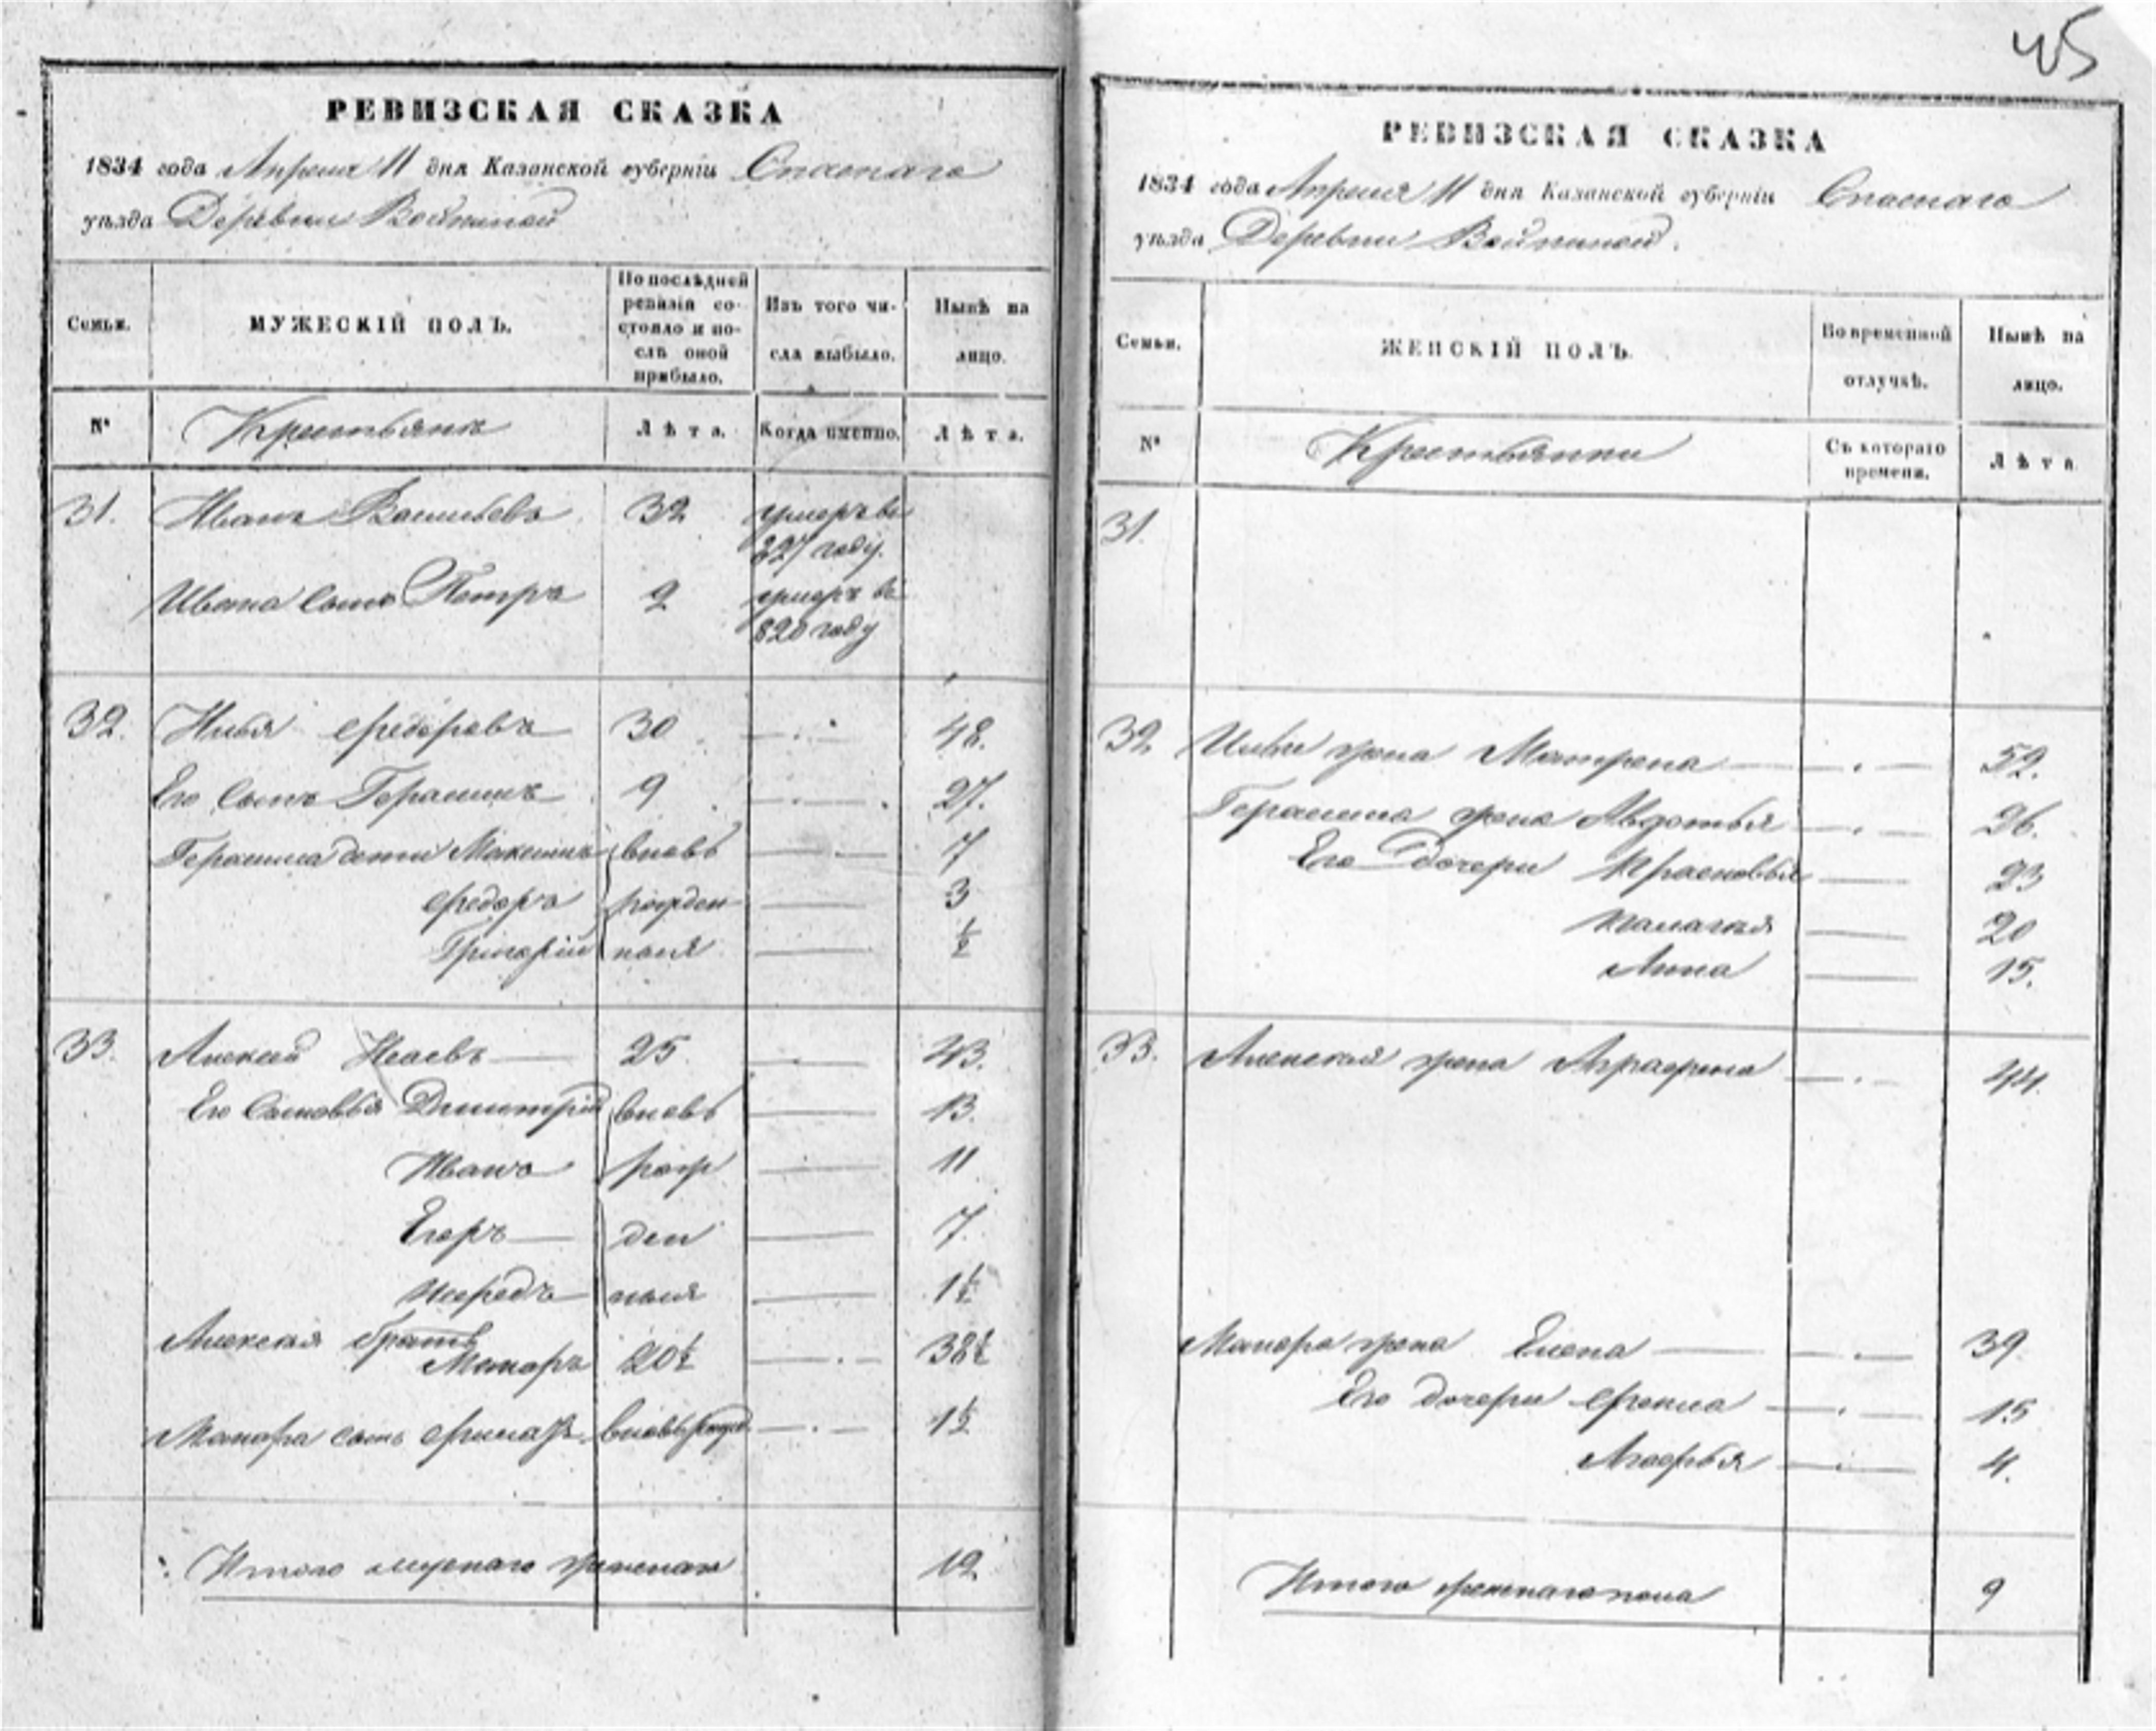 45
РЕВИЗСКАЯ СКАЗКА
1834 года Апреля 11 дня Казанской губерніи Спаскаго
уѣзда Деревни Войкиной
Семьи.
МУЖЕСКІЙ ПОЛЪ.
По послѣдней
ревизіи со-
стояло и по-
слѣ оной
прибыло.
Изъ того чи-
сла выбыло.
Нынѣ на
лицо.
№
Крестьянъ
Лѣта.
Когда именно.
Лѣта.
31. Иванъ Васильевъ 32 умеръ въ
827 году.
Ивана сынъ Петръ 2 умеръ въ
820 году
32. Илья Федоровъ 30 48.
Его сынъ Герасимъ 9 27.
Герасима дети Максимъ вновь 7
Федоръ рожден 3
Григорій ныя ½
33. Алексей Исаевъ 25 43.
Его Сыновья Дмитрій вновь 13.
Иванъ рож 11
Егоръ ден 7.
ныя 1½
Алексея братъ
Макаръ 20½ 38½
Макара сынъ вновь рожд. 1½
Итого мужскаго 12
РЕВИЗСКАЯ СКАЗКА
1834 года Апреля 11 дня Казанской губерніи Спаскаго
уѣзда Деревни Войкиной.
Семьи.
ЖЕНСКІЙ ПОЛЪ.
Во временной
отлучкѣ.
Нынѣ на
лицо.
№
Крестьянки
Съ котораго
времени.
Лѣта
31.
32 Ильи жена Матрена 52.
Герасима жена Авдотья 26.
Его дочери Прасковья 23
Палагея 20
Анна 15.
33. Алексея жена Аграфена 44.
Макара жена Елена 39
Его дочери 15
Агафья 4.
Итого женскаго пола 9